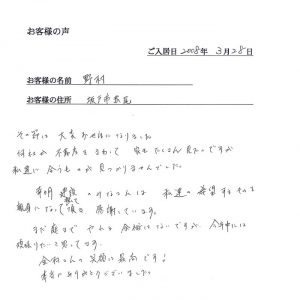 お客様の声
ご入居日 2008年 3月28日
お客様の名前 野村
お客様の住所 坂戸市
その節は 大変お世話になりました
何社か 不動産をまわって 家も たくさん見たのですが
私達に 合うものが 見つかりませんでした。
有明建設 のみなさんは 私達の 希望するものを
親身になって 頂き 感謝しています。
まだ庭まで やんと 余裕はないですが 今年中には
頑張りたいと思ってます。
さんの 笑顔は最高です！
本当にありがとうございました